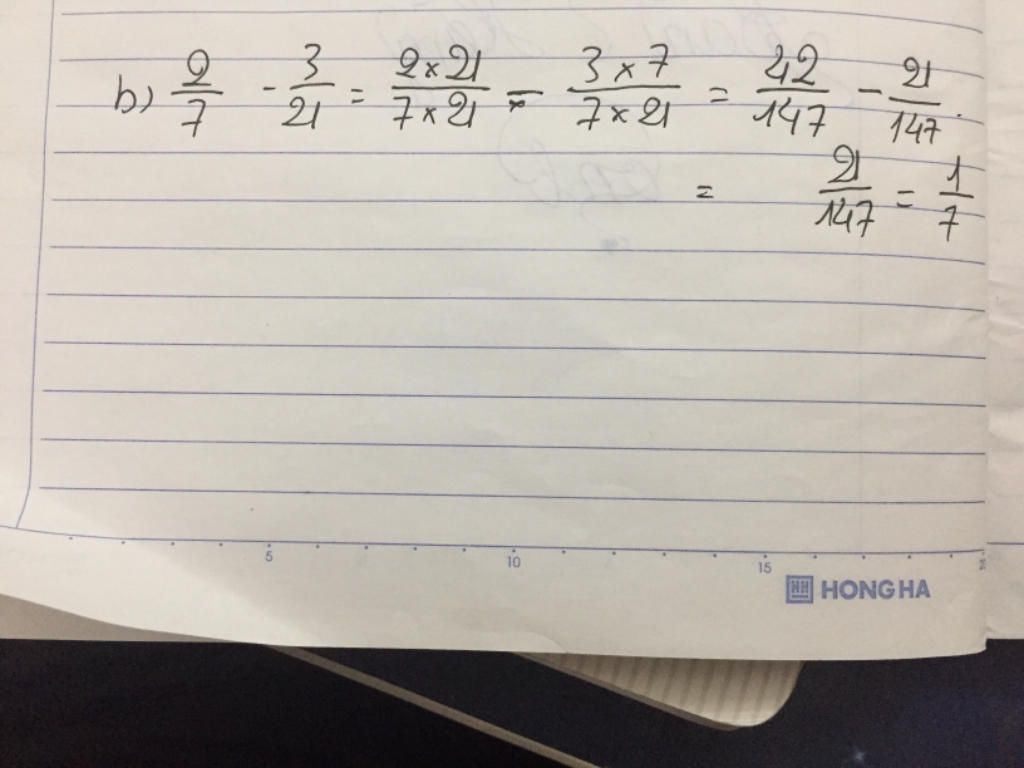 b) 2/7 - 3/21 = 2×21/7×21 - 3×7/7×21 = 42/147 - 21/147.
= 21/147 = 1/7
5 10 15
HONG HA